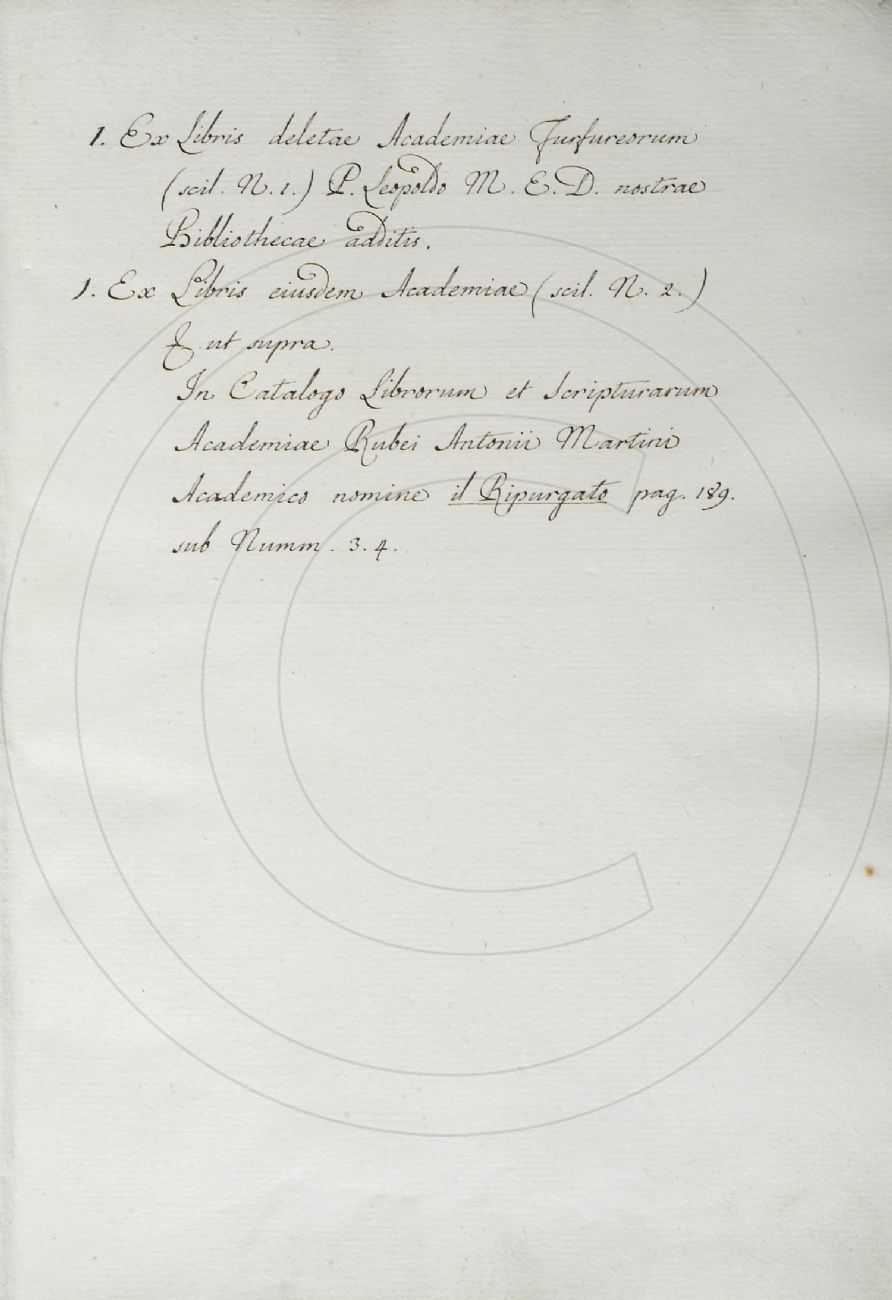 1. Ex Libris deletae Academiae Furfureorum
(scil. N. 1.) P. Leopoldo M. E. D. nostrae
Bibliothecae additis.
1. Ex Libris eiusdem Academiae (scil. N. 2.)
& ut supra.
In Catalogo Librorum et Scripturarum
Academiae Rubei Antonii Martini
Academico nomine il Ripurgato pag. 189.
sub Numm. 3. 4.